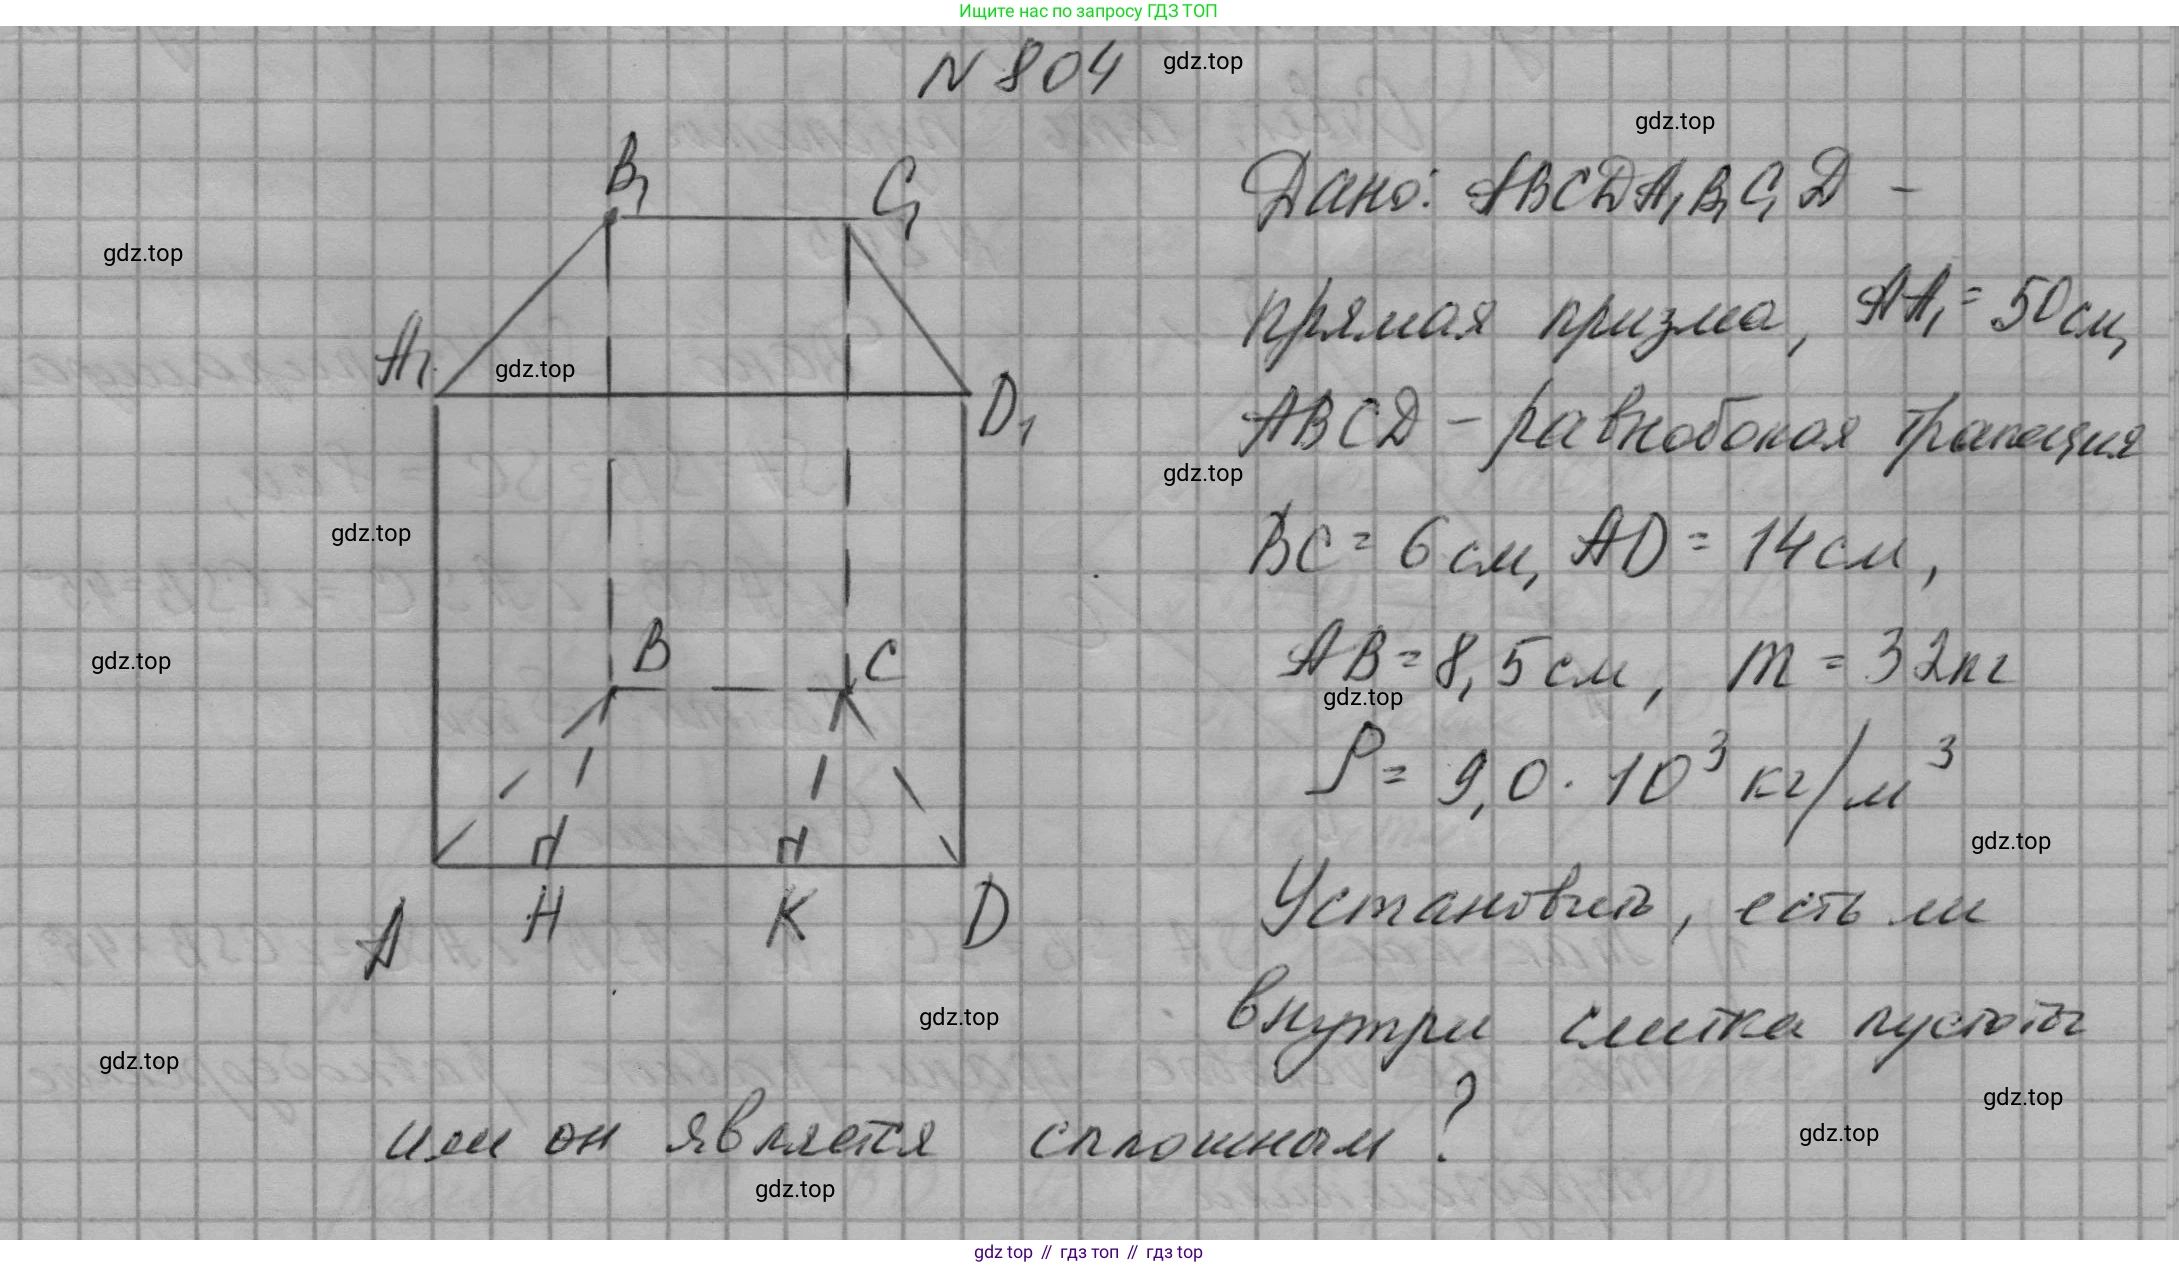 Ищите нас по запросу ГДЗ ТОП
N 804
gdz.top
gdz.top
B₁
C₁
Дано: ABCDA₁B₁C₁D -
gdz.top
прямая призма, AA₁ = 50 см,
A₁
gdz.top
D₁
ABCD - равнобокая трапеция
gdz.top
gdz.top
BC = 6 см, AD = 14 см,
B
C
gdz.top
AB = 8,5 см, m = 32 кг
gdz.top
ρ = 9,0 · 10³ кг/м³
gdz.top
A
H
K
D
Установить, есть ли
gdz.top
внутри слитка пустоты
gdz.top
gdz.top
или он является сплошным?
gdz.top
gdz.top
gdz top // гдз топ // гдз top